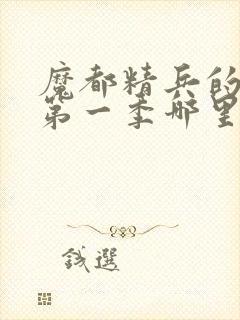 魔都精兵的
第一季哪里
钱選